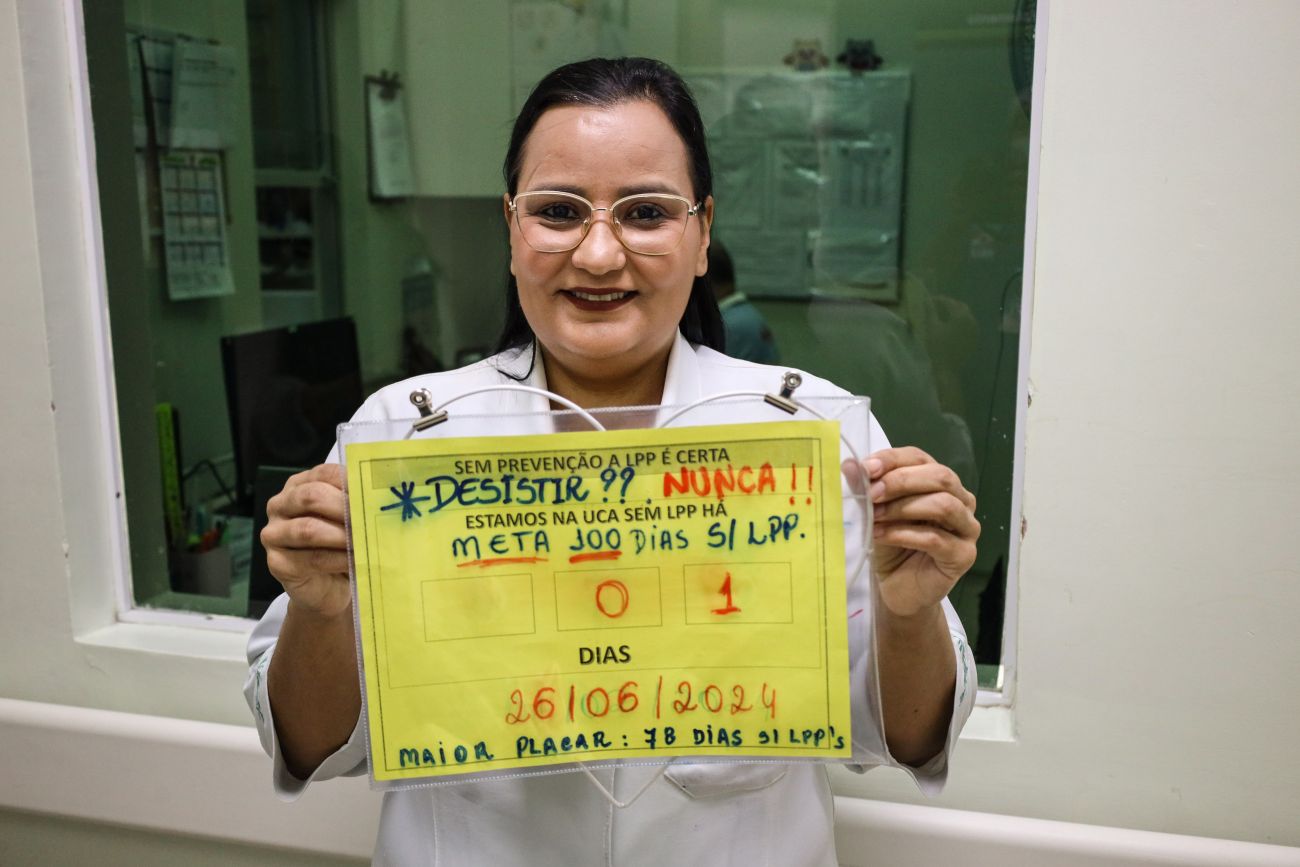 SEM PREVENÇÃO A LPP É CERTA
*DESISTIR ??. NUNCA !!
ESTAMOS NA UCA SEM LPP HÁ
META 100 DIAS S/ LPP.
0 1
DIAS
26/06/2024
MAIOR PLACAR: 78 DIAS S/ LPP's